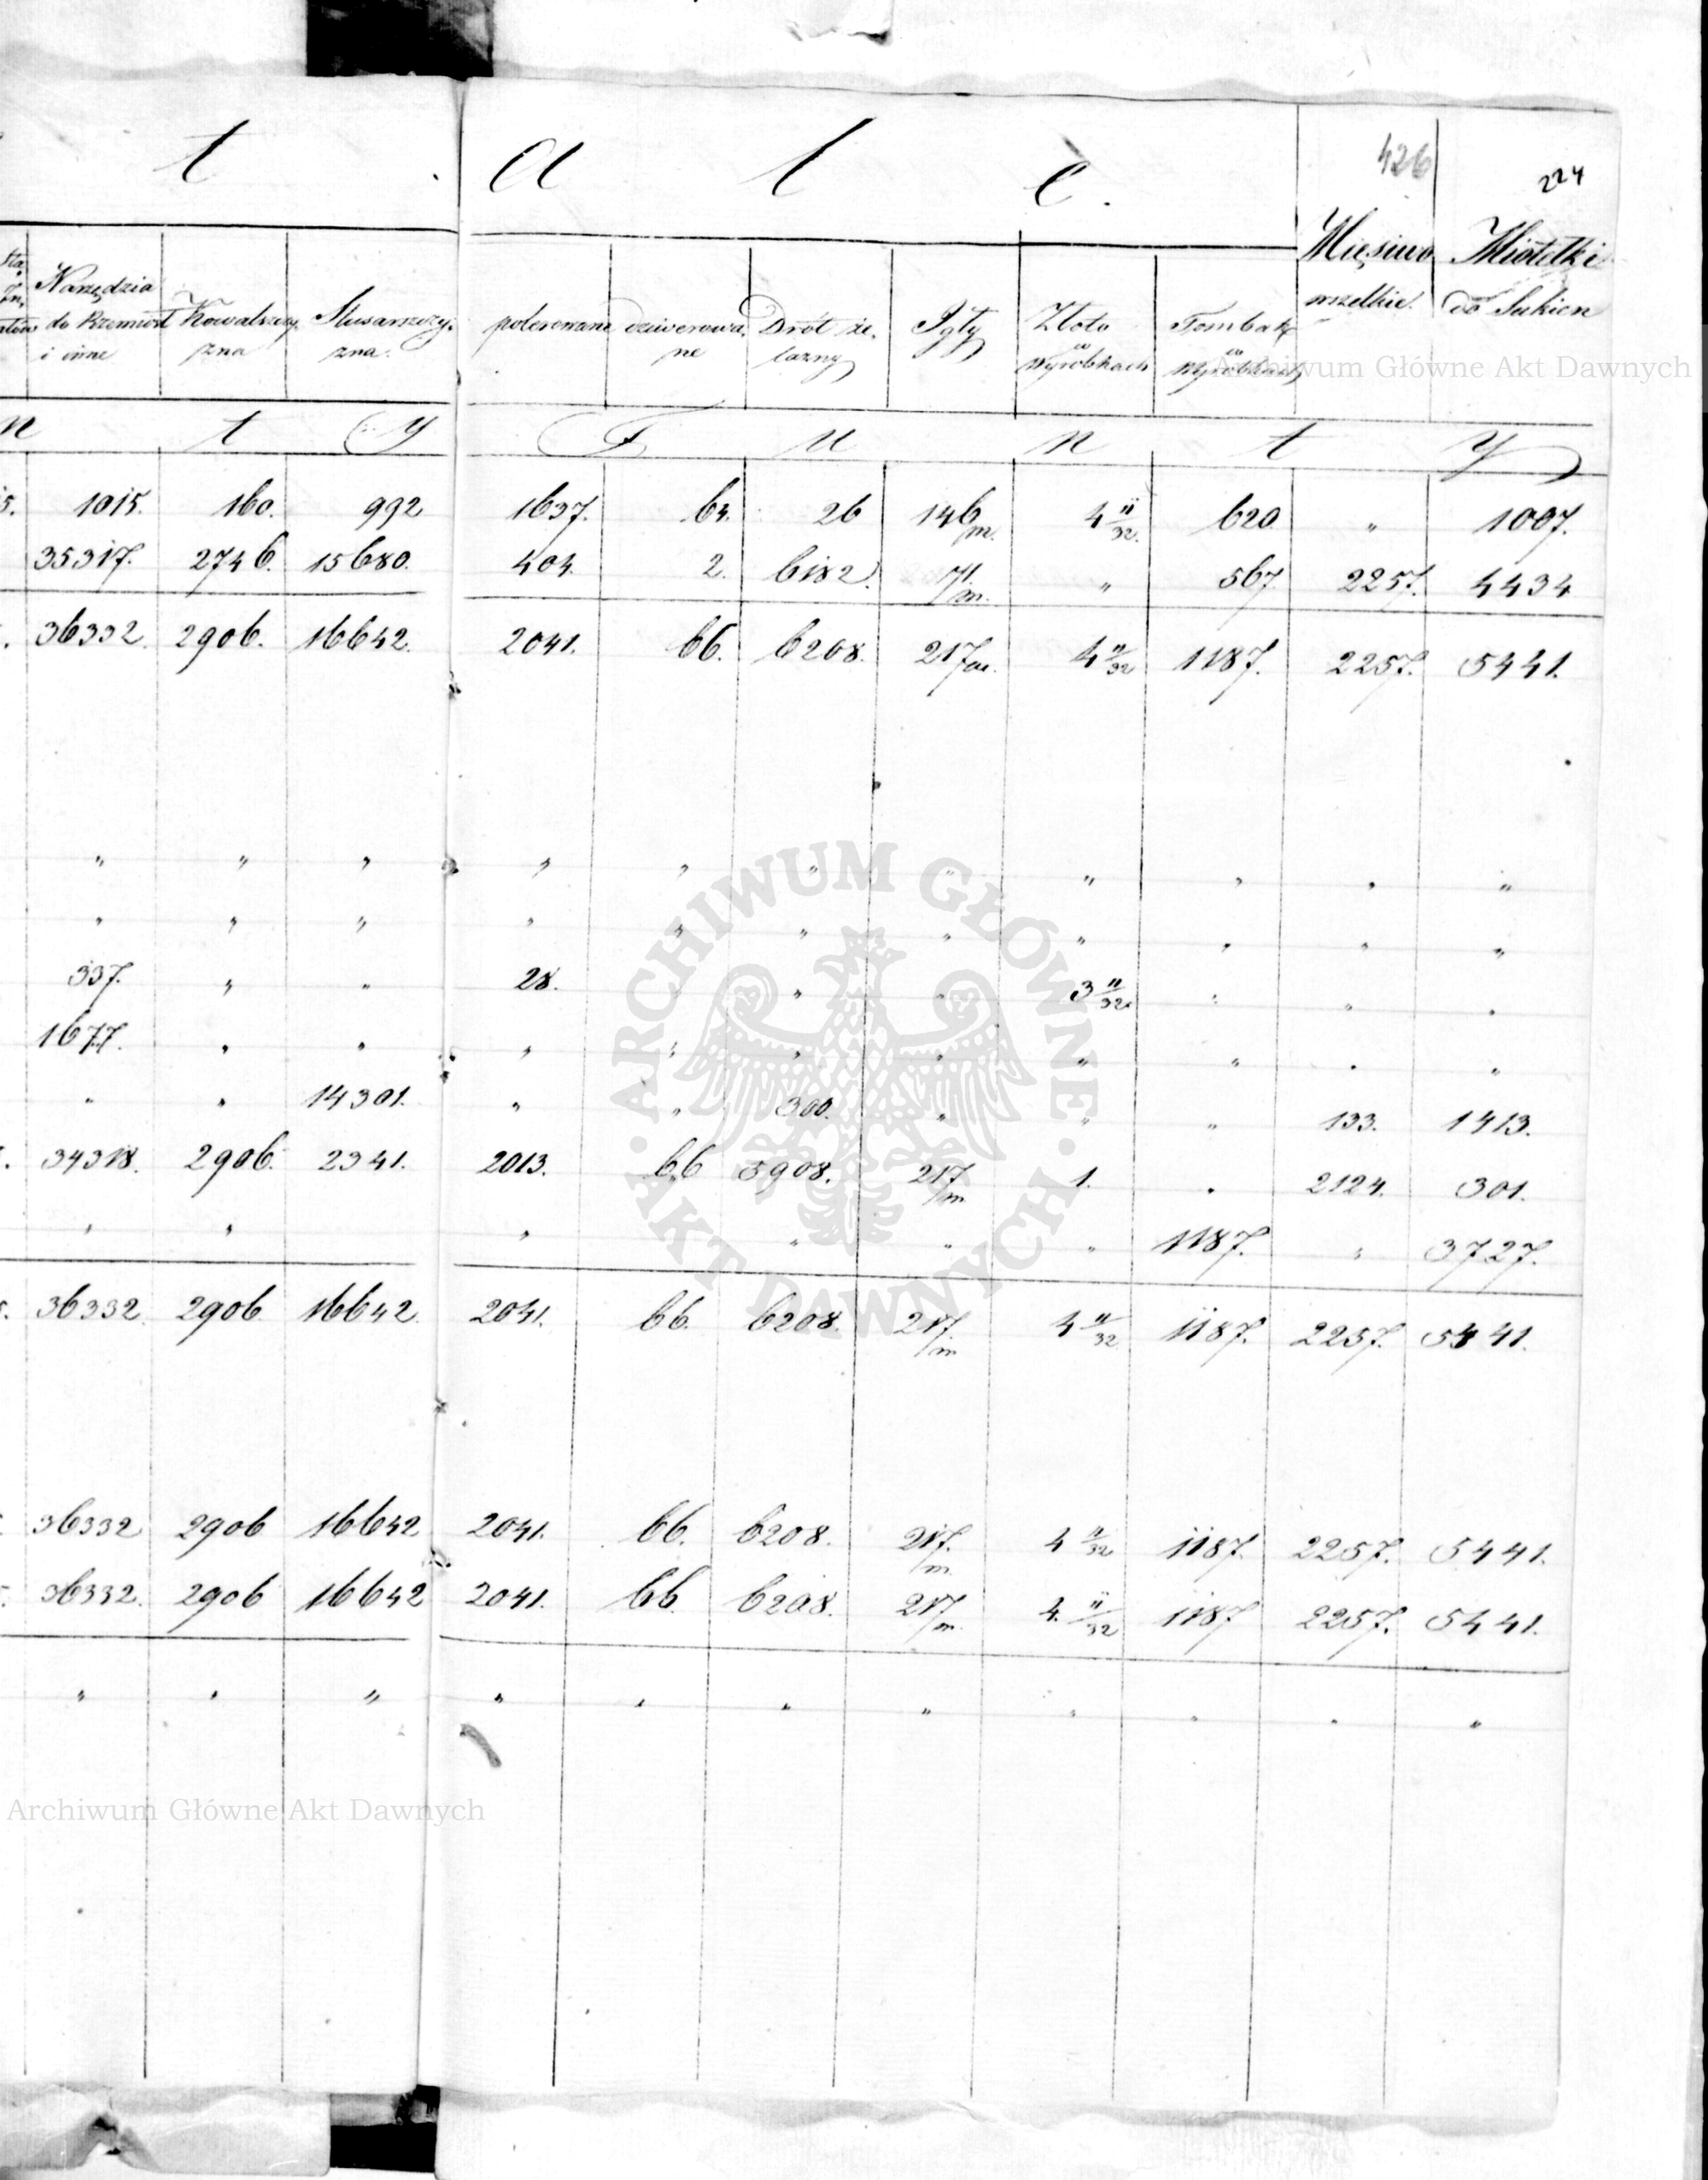 t a l e.
426 224
Narzędzia do Rzemiosł i inne Kowalszczyzna Slusarszczyzna polerowane dziwerowane Drót żelazny Igły Złoto w wyrobkach Tombak w wyrobkach Mięsiwo wszelkie Miotełki do Sukien
n t y F u n t y
1015. 160. 992 1637. 64. 26 146/m. 4 11/32. 620 " 1007.
35317. 2746. 15680. 404. 2. 6182. 71/m. " 567 2257. 4434
36332. 2906. 16642. 2041. 66. 6208. 217/m. 4 11/32 1187. 2257. 5441.
" " " " " " " " " " "
" " " " " " " " " " "
337. " " 28. " " " 3 11/32. " " "
1677. " " " " " " " " " "
" " 14301. " " 300. " " " 133. 1413.
34318. 2906. 2341. 2013. 66 5908. 217/m 1. " 2124. 301.
" " " " " " 1187. " 3727.
36332. 2906 16642. 2041. 66. 6208. 217./m 4 11/32 1187. 2257. 5441.
36332 2906 16642 2041. 66. 6208. 217./m 4 11/32 1187. 2257. 5441.
36332. 2906 16642 2041. 66. 6208. 217/m. 4. 11/32 1187 2257. 5441.
" " " " " " " " " " "
Archiwum Główne Akt Dawnych
ARCHIWUM GŁÓWNE · AKT DAWNYCH ·
Archiwum Główne Akt Dawnych